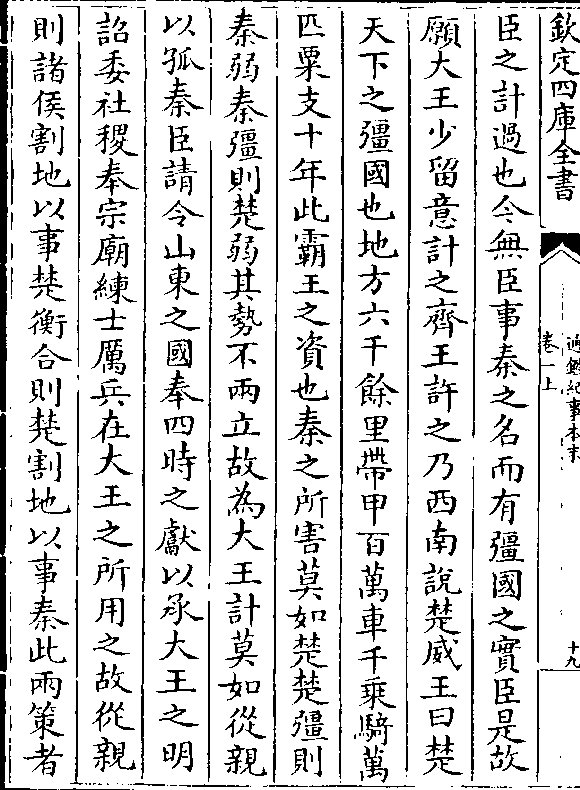 欽定四庫全書
通鑑紀事本末
卷一上
十九
臣之計過也今無臣事秦之名而有彊國之實臣是故
願大王少留意計之齊王許之乃西南說楚威王曰楚
天下之彊國也地方六千餘里帶甲百萬車千乘騎萬
匹粟支十年此霸王之資也秦之所害莫如楚楚彊則
秦弱秦彊則楚弱其勢不兩立故為大王計莫如從親
以孤秦臣請令山東之國奉四時之獻以承大王之明
詔委社稷奉宗廟練士厲兵在大王之所用之故從親
則諸侯割地以事楚衡合則楚割地以事秦此兩策者